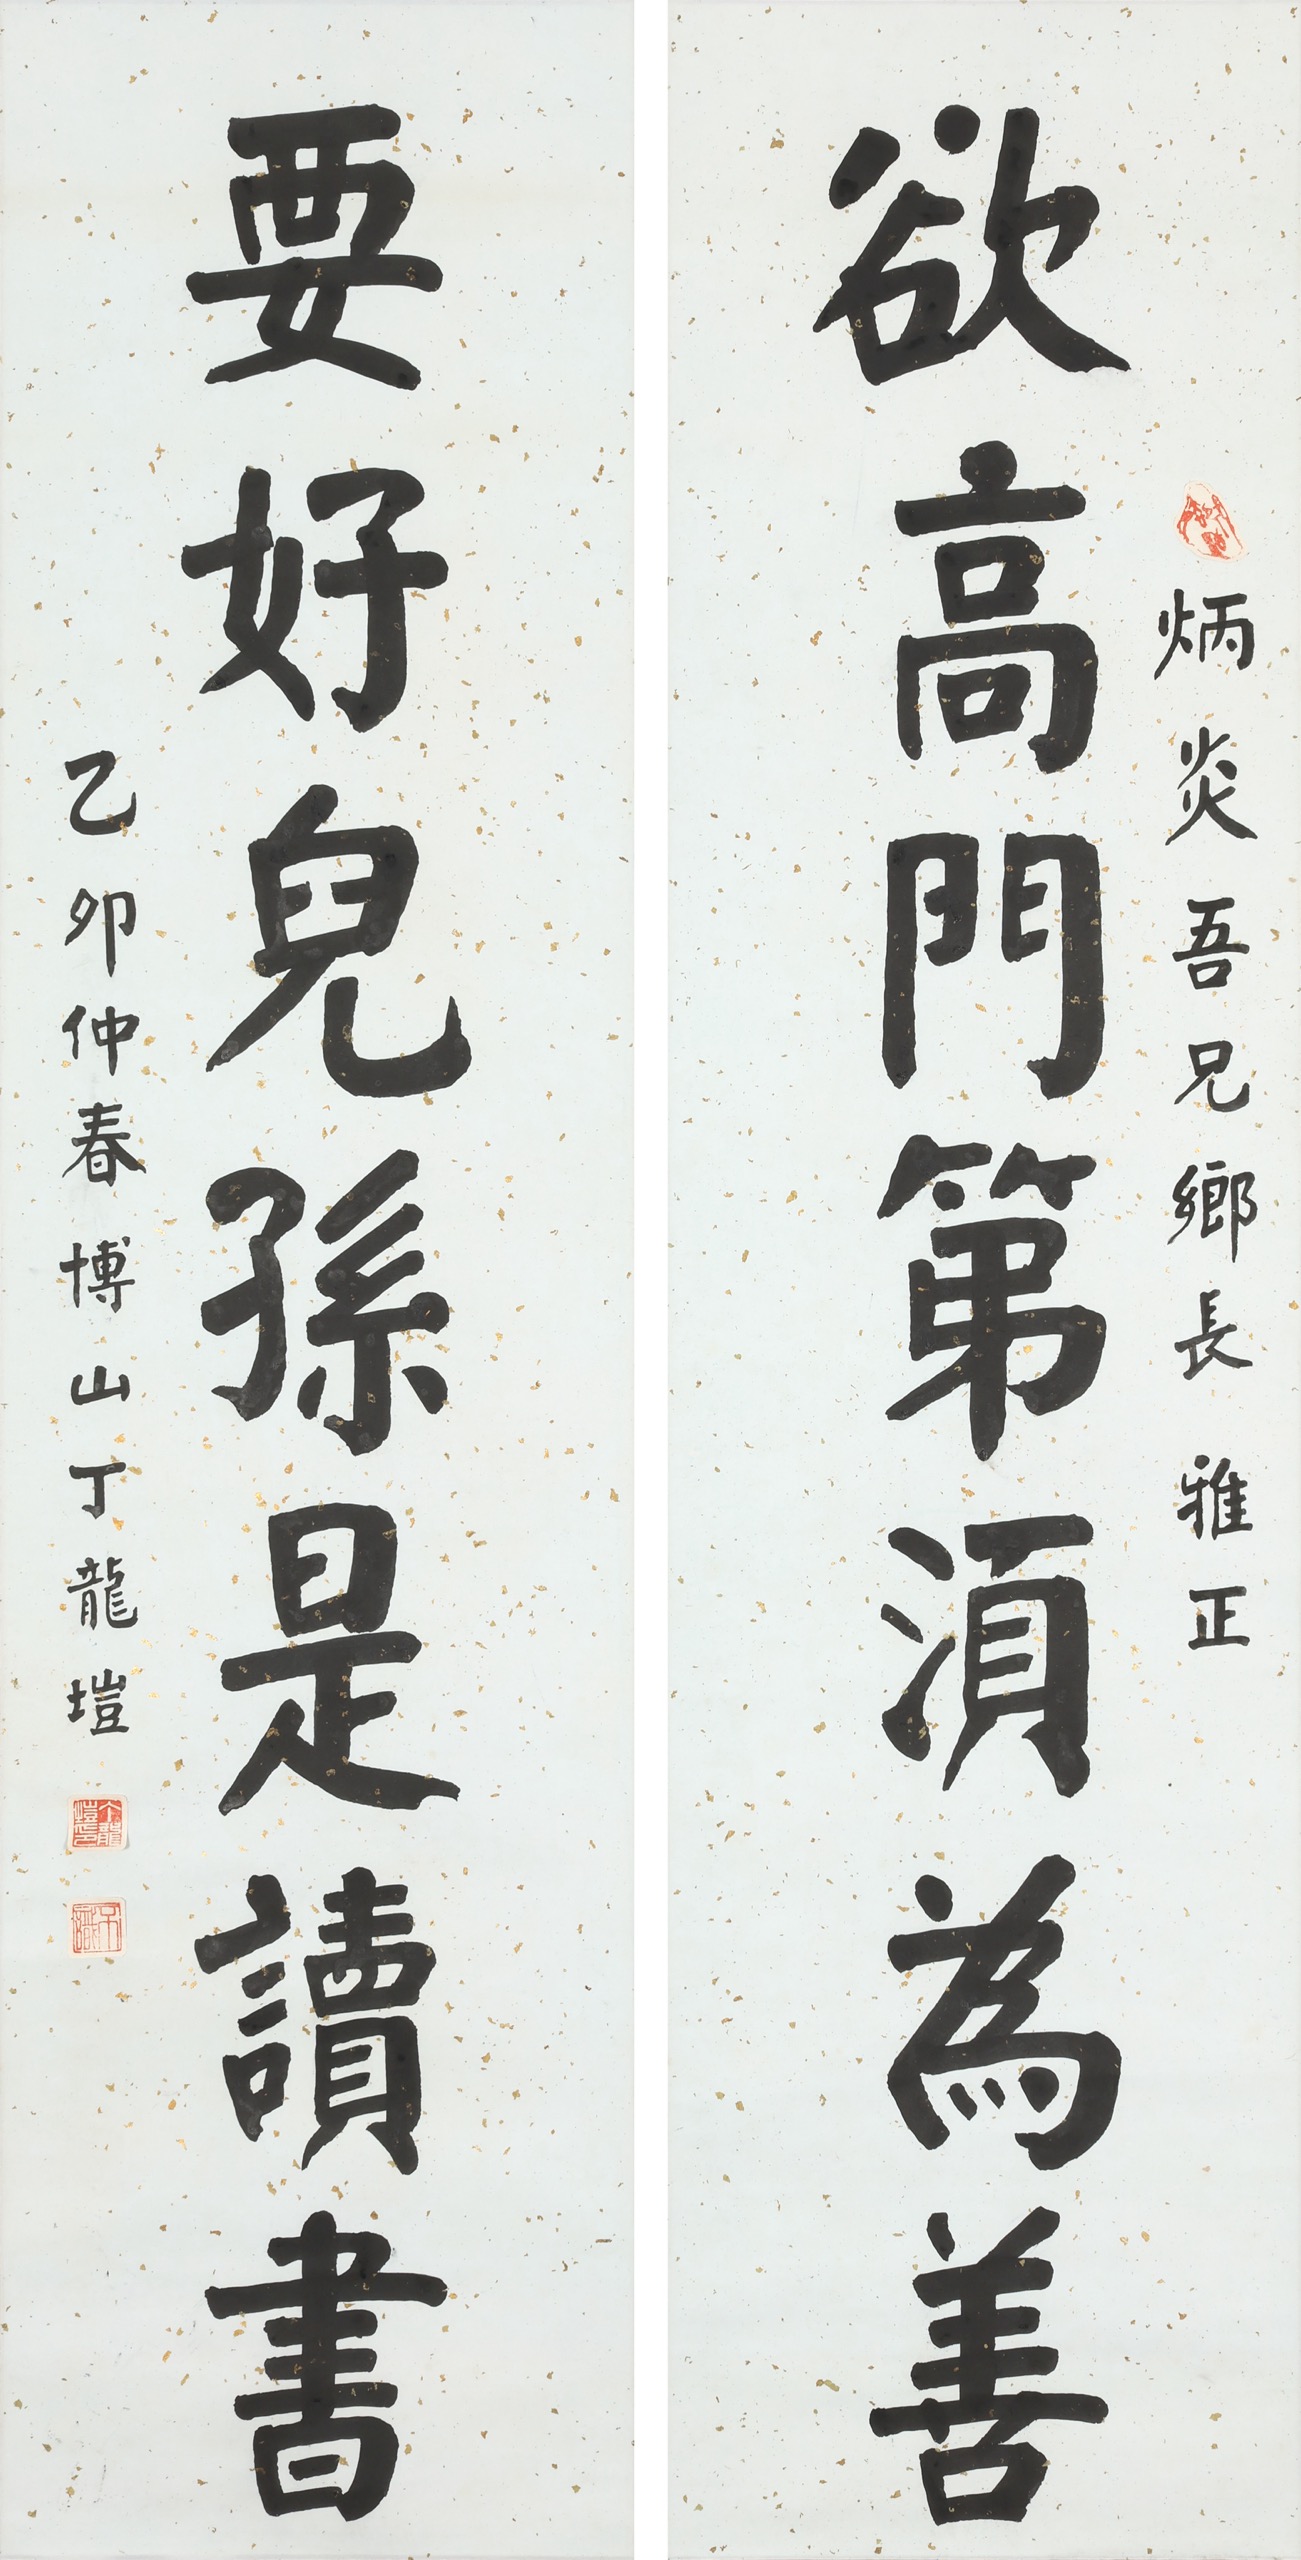 炳炎吾兄鄉長 雅正
欲高門第須為善
要好兒孫是讀書
乙卯仲春博山丁龍塏